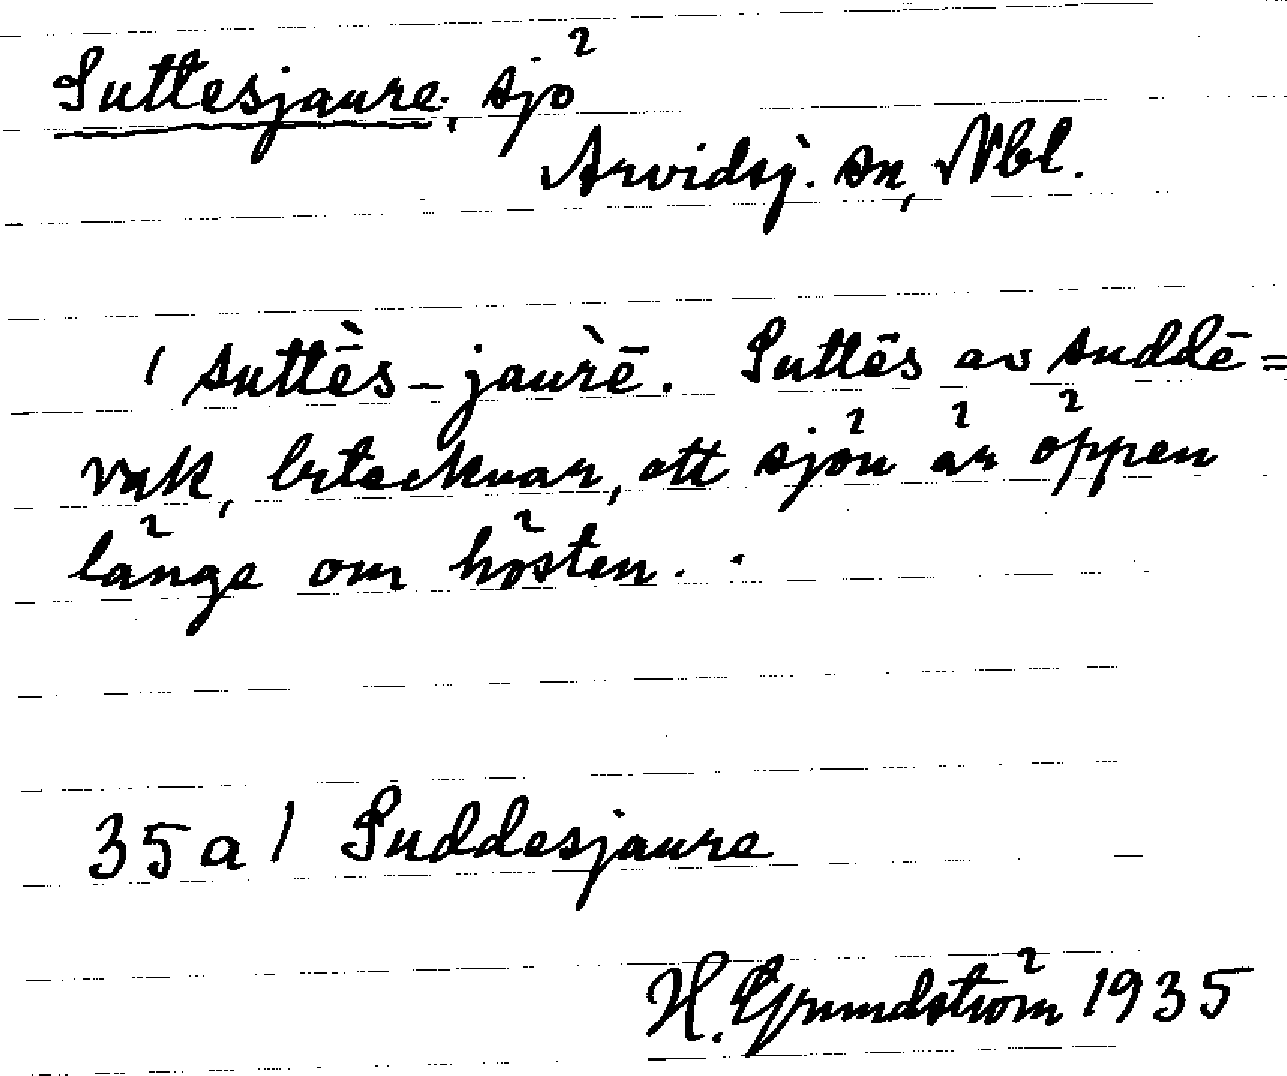 Suttesjaure, sjö
Arvidsj. sn, Nbl.
/ suttēs-jaurē. Suttēs av suddē =
vak, betecknar, att sjön är öppen
länge om hösten.
35 a / Suddesjaure
H. Grundström 1935